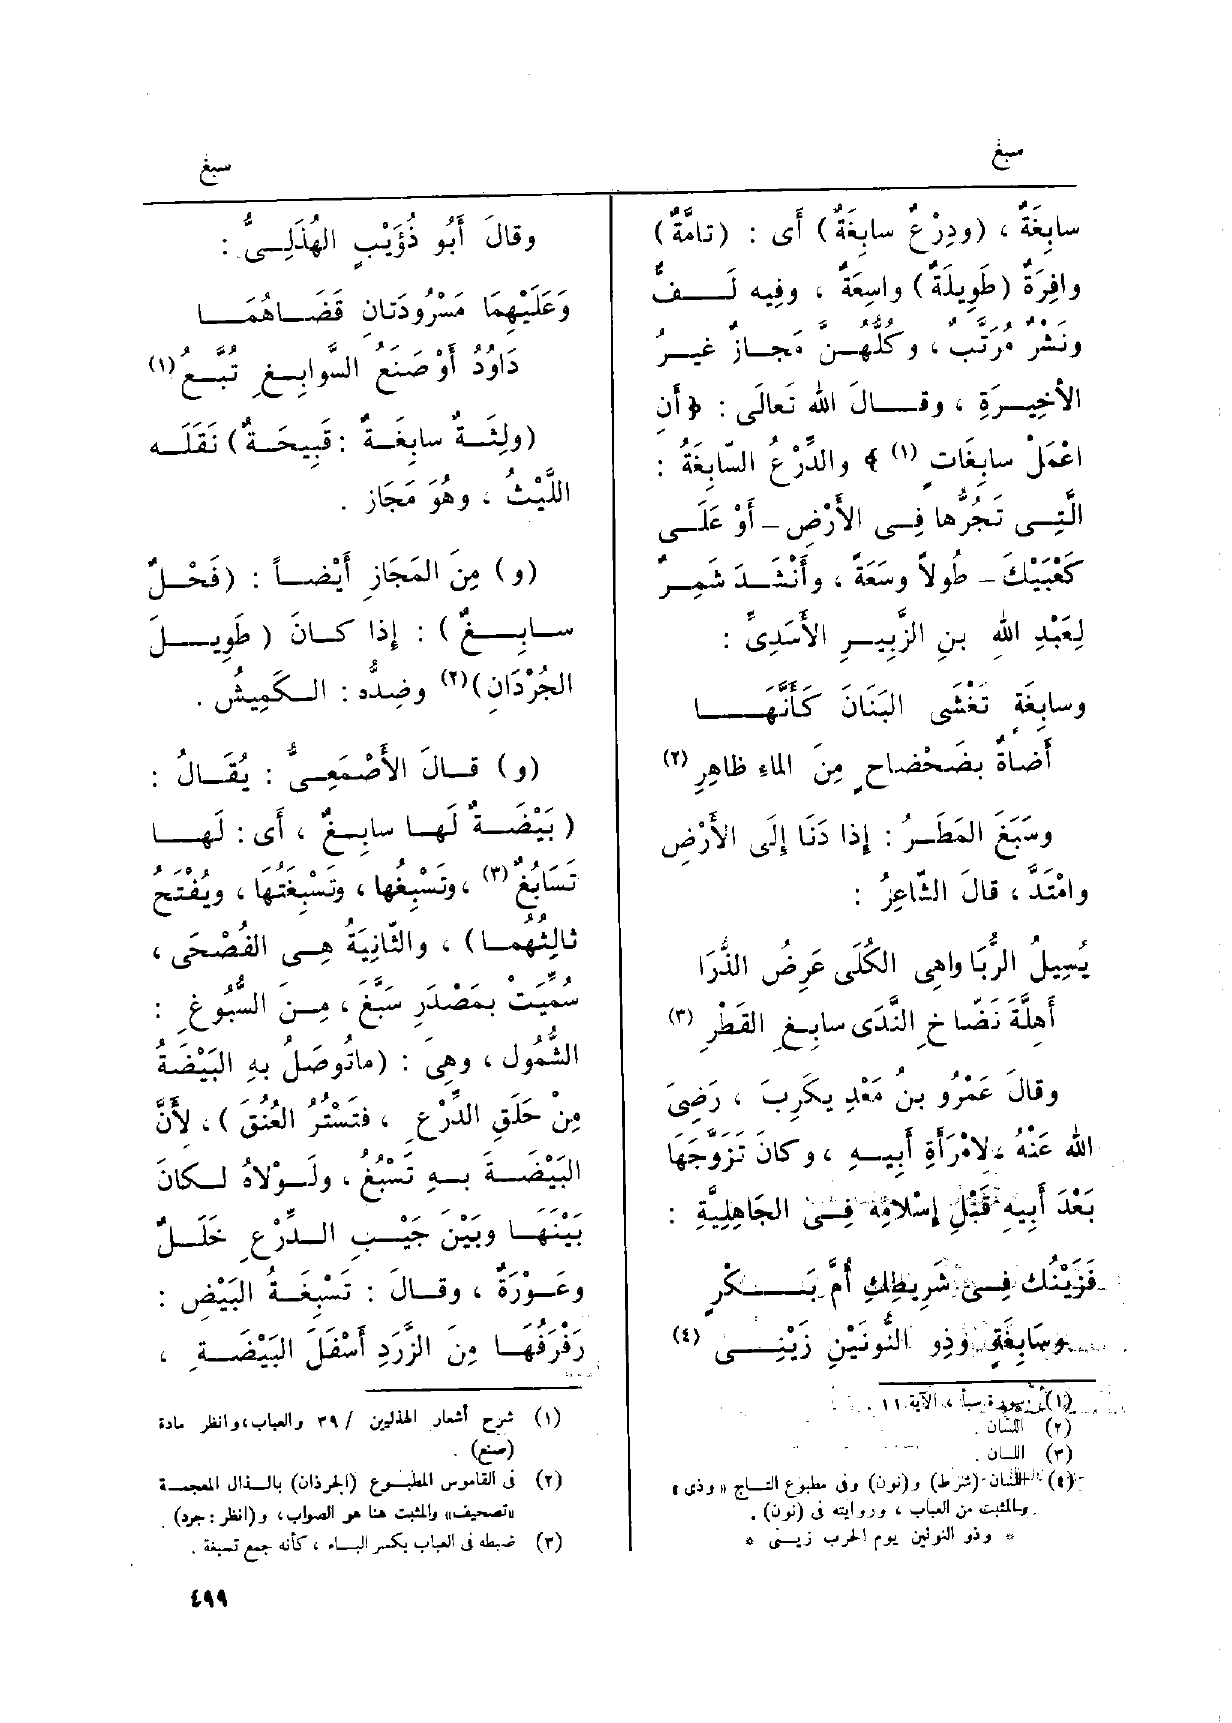 سبغ
سبغ
سابِغَةٌ ، (ودِرْعٌ سابِغَةٌ) أَى : (تامَّةٌ)
وافِرَةٌ (طَوِيلَةٌ) واسِعَةٌ ، وفِيه لَفٌّ
ونَشْرٌ مُرَتَّب ، وكُلُّهنَّ مَجازٌ غيرُ
الأَخِيرَةِ ، وقالَ الله تَعالَى : ﴿ أَنِ
اعْمَلْ سابِغاتٍ (١) ﴾ والدِّرْعُ السّابِغَةُ :
الَّتِى تَجُرُّها فِى الأَرْضِ – أَوْ عَلَى
كَعْبَيْكَ – طُولاً وسَعَةً ، وأَنْشَدَ شَمِرٌ
لِعَبْدِ اللهِ بنِ الزَّبِيرِ الأَسَدِىِّ :
وسابِغَةٍ تَغْشَى البَنَانَ كَأَنَّهَا
أَضاةٌ بضَحْضاحٍ مِنَ الماءِ ظاهِرِ (٢)
وسَبَغَ المَطَرُ : إذا دَنَا إِلَى الأَرْضِ
وامْتَدَّ ، قالَ الشّاعِرُ :
يُسِيلُ الرُّبَا واهِى الكُلَى عَرِضُ الذُّرَا
أَهِلَّةَ نَضّاخِ النَّدَى سابِغِ القَطْرِ (٣)
وقالَ عَمْرُو بنُ مَعْدِ يكَرِبَ ، رَضِىَ
الله عَنْهُ ، لامْرَأَةِ أَبِيهِ ، وكانَ تَزَوَّجَهَا
بَعْدَ أَبِيهِ قَبْلِ إِسْلامِهِ فِى الجَاهِلِيَّةِ :
فَزَيْنُكِ فِى شَرِيطِكِ أُمَّ بَكْرٍ
وسَابِغَةٍ وذو النُّونَيْنِ زَيْنِى (٤)
(١) سورة سبأ ، الآية ١١ .
(٢) اللسان .
(٣) اللسان .
(٤) اللسان (شرط) و(نون) وفى مطبوع التاج « وذى »
والمثبت من العباب ، وروايته فى (نون) .
* وذو النونين يوم الحرب زينى *
وقالَ أَبُو ذُؤَيْبٍ الهُذَلِىُّ :
وَعَلَيْهِمَا مَسْرُودَتانِ قَضَاهُمَا
دَاوُدُ أَوْ صَنَعُ السَّوابِغِ تُبَّعُ (١)
(ولِثَةٌ سابَغَةٌ : قَبِيحَةٌ) نَقَلَه
اللَّيْثُ ، وهُوَ مَجَاز .
(و) مِنَ المَجَازِ أَيْضاً : (فَحْلٌ
سابِغٌ) : إذا كانَ ( طَوِيلَ
الجُرْدَانِ)(٢) وضِدُّه : الكَمِيشُ .
(و) قالَ الأَصْمَعِىُّ : يُقَالُ :
( بَيْضَةٌ لَها سابِغٌ ، أَى : لَها
تَسَابُغٌ (٣) ، وتَسْبِغُها ، وتَسْبِغَتُها ، ويُفْتَحُ
ثالِثُهما) ، والثّانِيَةُ هِى الفُصْحَى ،
سُمِّيَتْ بمَصْدَرِ سَبَّغَ ، مِنَ السُّبُوغِ :
الشُّمُول ، وهِىَ : (ماتُوصَلُ بهِ البَيْضَةُ
مِنْ حَلَقِ الدِّرْعِ ، فتَسْتُرُ العُنُقَ) ، لأَنَّ
البَيْضَةَ بهِ تَسْبُغُ ، ولَوْلاهُ لكانَ
بَيْنَها وبَيْنَ جَيْبِ الدِّرْعِ خَلَلٌ
وعَوْرَةٌ ، وقالَ : تَسْبِغَةُ البَيْضِ :
رَفْرَفُها مِنَ الزَّرَدِ أَسْفَلَ البَيْضَةِ ،
(١) شرح أشعار الهذليين / ٣٩ والعباب، وانظر مادة
(صنع) .
(٢) فى القاموس المطبوع (الجرذان) بالذال المعجمة
«تصحيف» والمثبت هنا هو الصواب، و(انظر : جرد) .
(٣) ضبطه فى العباب بكسر الباء ، كأنه جمع تسبغة .
٤٩٩